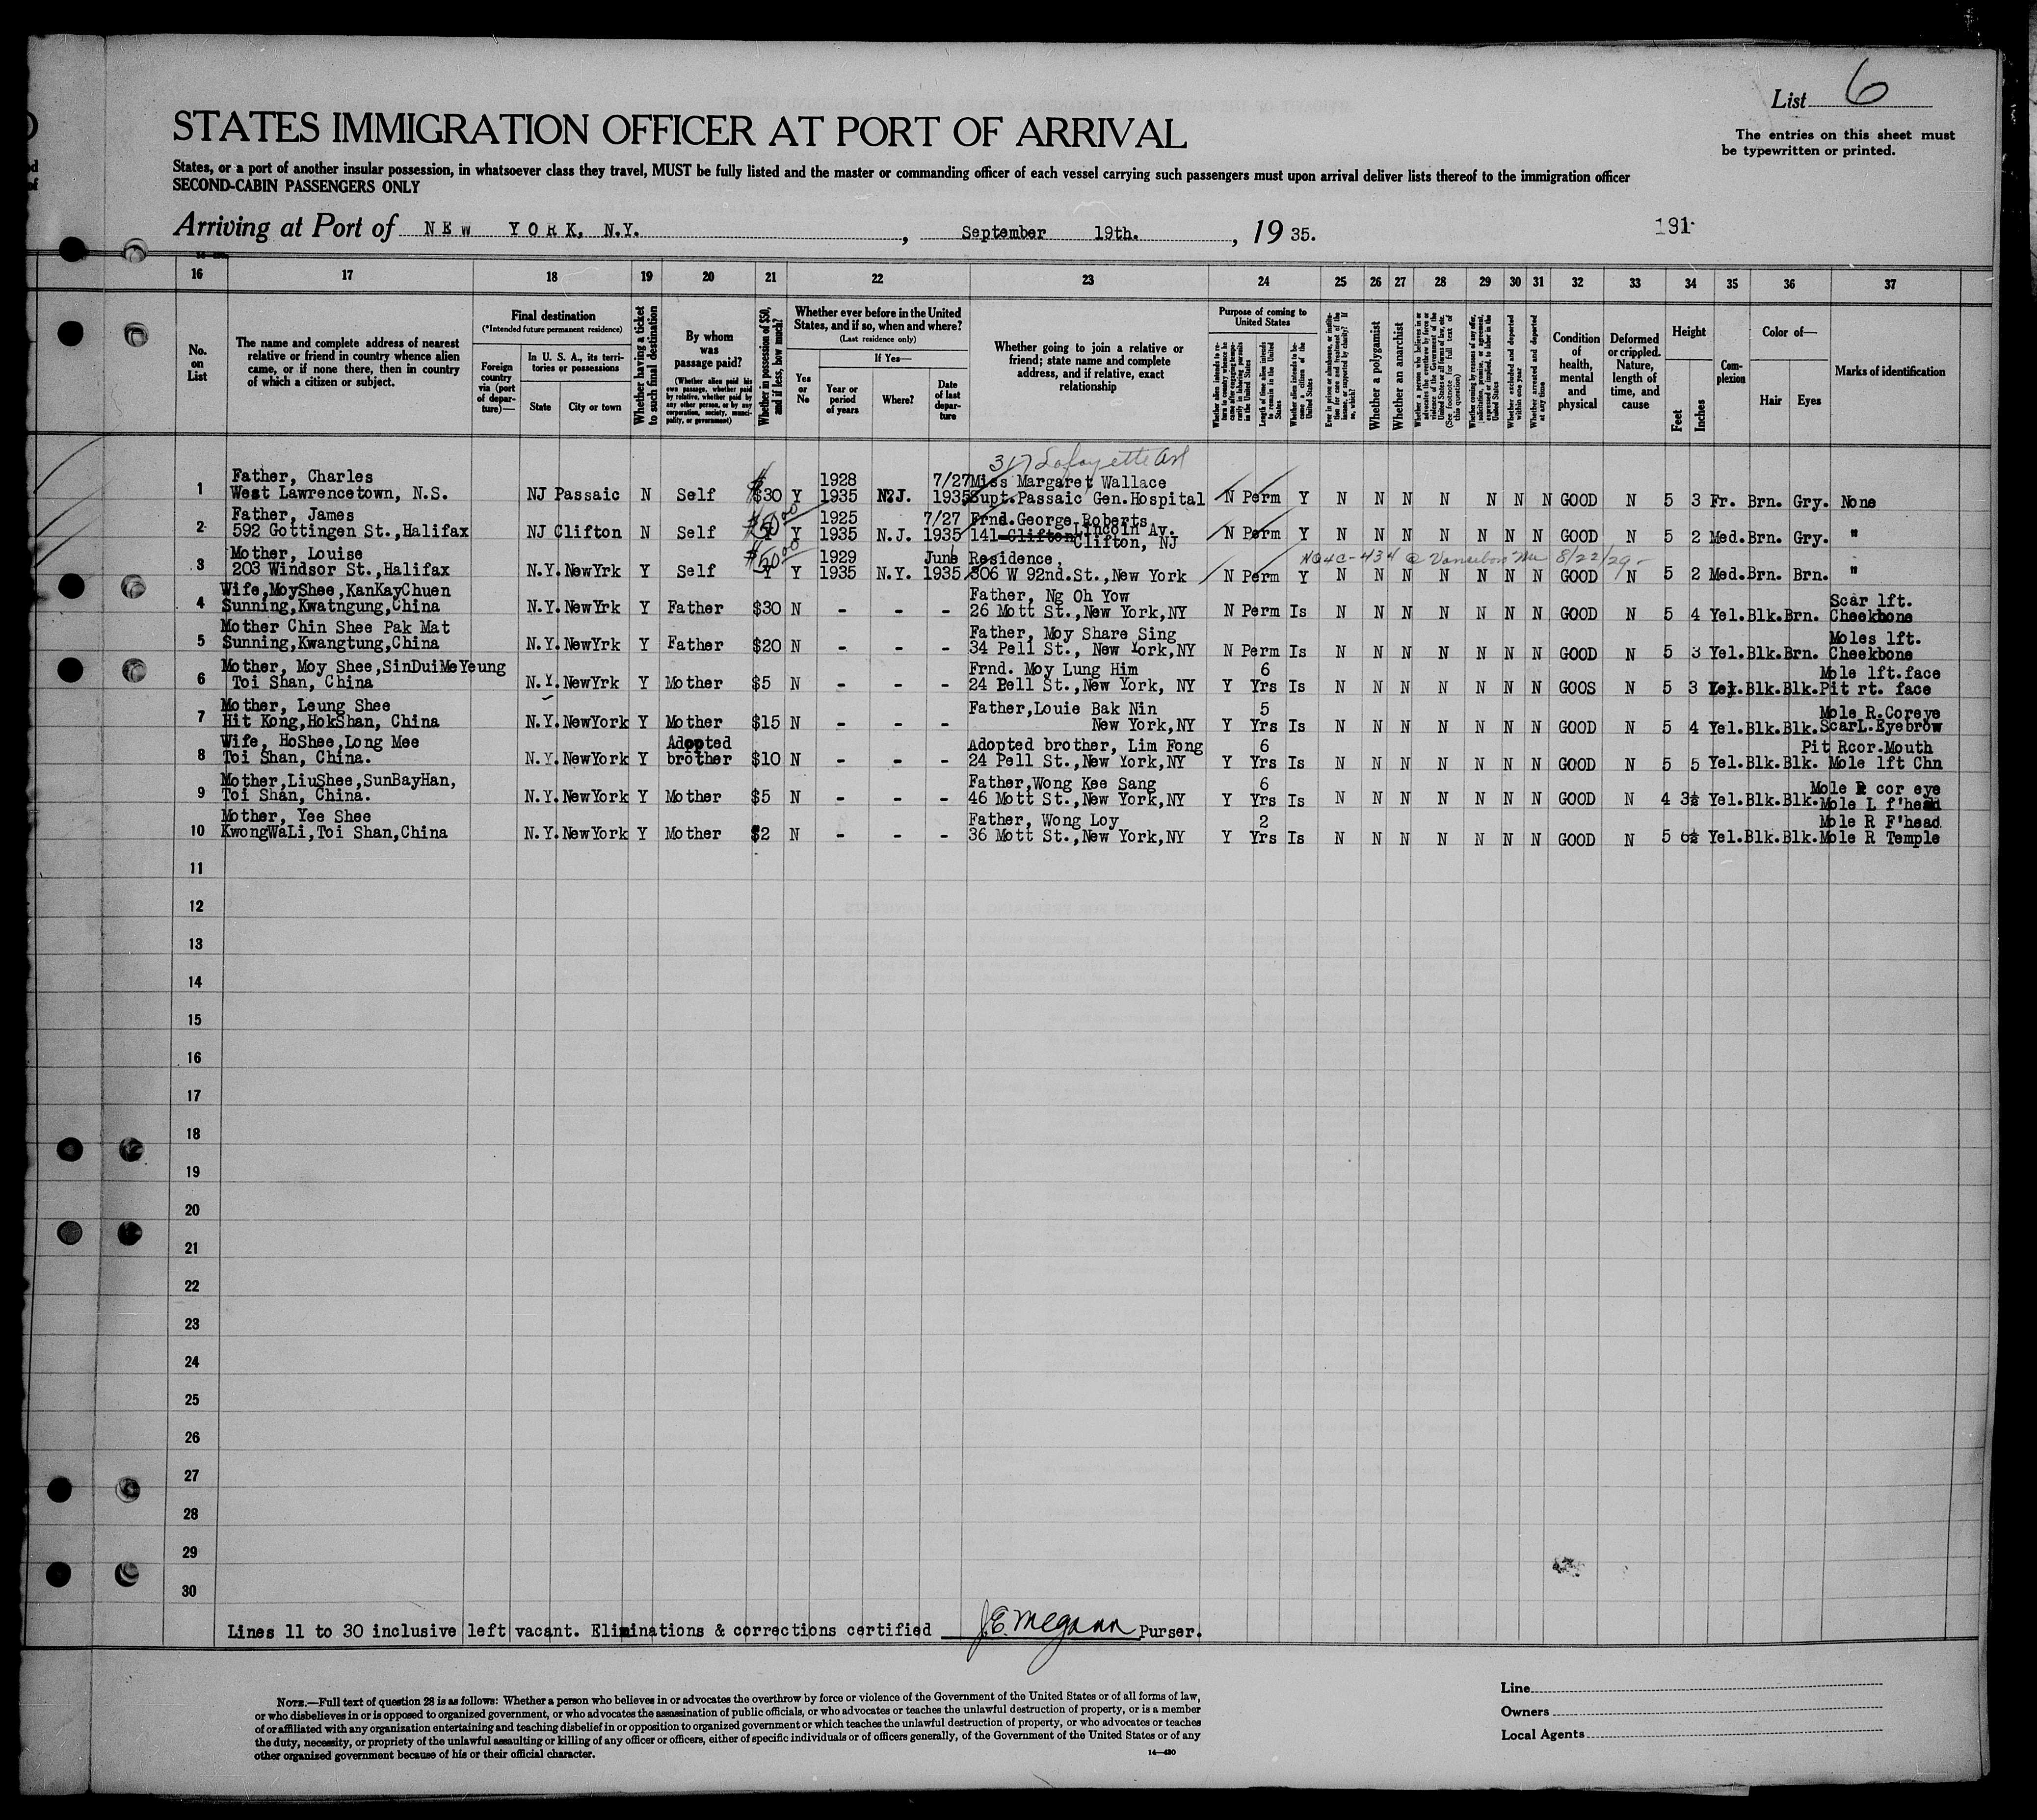 List 6
STATES IMMIGRATION OFFICER AT PORT OF ARRIVAL
The entries on this sheet must
be typewritten or printed.
States, or a port of another insular possession, in whatsoever class they travel, MUST be fully listed and the master or commanding officer of each vessel carrying such passengers must upon arrival deliver lists thereof to the immigration officer
SECOND-CABIN PASSENGERS ONLY
Arriving at Port of NEW YORK, N.Y. , September 19th. , 19 35.
191
16 17 18 19 20 21 22 23 24 25 26 27 28 29 30 31 32 33 34 35 36 37
No.
on
List
The name and complete address of nearest
relative or friend in country whence alien
came, or if none there, then in country
of which a citizen or subject.
Final destination
(*Intended future permanent residence)
Foreign
country
via (port
of depar-
ture)—
In U. S. A., its terri-
tories or possessions
State City or town
Whether having a ticket
to such final destination
By whom
was
passage paid?
(Whether alien paid his
own passage, whether paid
by relative, whether paid by
any other person, or by any
corporation, society, munici-
pality, or government)
Whether in possession of $50,
and if less, how much?
Whether ever before in the United
States, and if so, when and where?
(Last residence only)
Yes
or
No
If Yes—
Year or
period
of years
Where?
Date
of last
depar-
ture
Whether going to join a relative or
friend; state name and complete
address, and if relative, exact
relationship
Purpose of coming to
United States
Length of time alien intends
to remain in the United
States
Whether alien intends to be-
come a citizen of the
United States
Whether a polygamist
Whether an anarchist
Whether excluded and deported
within one year
Whether arrested and deported
at any time
Condition
of
health,
mental
and
physical
Deformed
or crippled.
Nature,
length of
time, and
cause
Height
Feet Inches
Com-
plexion
Color of—
Hair Eyes
Marks of identification
317 Lafayette
Father, Charles 1928 7/27 Miss Margaret Wallace
1 West Lawrencetown, N.S. NJ Passaic N Self $30 Y 1935 N.J. 1935 Supt.Passaic Gen.Hospital N Perm Y N N N N N N N GOOD N 5 3 Fr. Brn. Gry. None
Father, James 1925 7/27 Frnd.George Roberts
2 592 Gottingen St.,Halifax NJ Clifton N Self $50.00 Y Y 1935 N.J. 1935 141 Clifton Lincoln Av. N Perm Y N N N N N N N GOOD N 5 2 Med.Brn. Gry. "
Clifton, NJ
Mother, Louise $50.00 1929 June Residence, 8/22/29
3 203 Windsor St.,Halifax N.Y.NewYrk Y Self Y Y 1935 N.Y. 1935 306 W 92nd.St.,New York N Perm Y N N N N N N N GOOD N 5 2 Med.Brn. Brn. "
Wife,MoyShee,KanKayChuen Father, Ng Oh Yow Scar lft.
4 Sunning,Kwatngung,China N.Y.NewYrk Y Father $30 N - - - 26 Mott St.,New York,NY N Perm Is N N N N N N N GOOD N 5 4 Yel.Blk.Brn. Cheekbone
Mother Chin Shee Pak Mat Father, Moy Share Sing Moles lft.
5 Sunning,Kwangtung,China N.Y.NewYrk Y Father $20 N - - - 34 Pell St., New York,NY N Perm Is N N N N N N N GOOD N 5 3 Yel.Blk.Brn. Cheekbone
Mother, Moy Shee,SinDuiMeYeung Frnd. Moy Lung Him 6 Mole lft.face
6 Toi Shan, China N.Y.NewYrk Y Mother $5 N - - - 24 Pell St.,New York, NY Y Yrs Is N N N N N N N GOOS N 5 3 Yel.Blk.Blk.Pit rt. face
Mother, Leung Shee Father,Louie Bak Nin 5 Mole R.Coreye
7 Hit Kong,HokShan, China N.Y.NewYork Y Mother $15 N - - - New York,NY Y Yrs Is N N N N N N N GOOD N 5 4 Yel.Blk.Blk.ScarL.Eyebrow
Wife, HoShee,Long Mee Adopted Adopted brother, Lim Fong 6 Pit Rcor.Mouth
8 Toi Shan, China. N.Y.NewYork Y brother $10 N - - - 24 Pell St.,New York,NY Y Yrs Is N N N N N N N GOOD N 5 5 Yel.Blk.Blk. Mole lft Chn
Mother,LiuShee,SunBayHan, Father,Wong Kee Sang 6 Mole R cor eye
9 Toi Shan, China. N.Y.NewYork Y Mother $5 N - - - 46 Mott St.,New York,NY Y Yrs Is N N N N N N N GOOD N 4 3½ Yel.Blk.Blk.Mole L f'head
Mother, Yee Shee Father, Wong Loy 2 Mole R F'head
10 KwongWaLi,Toi Shan,China N.Y.NewYork Y Mother $2 N - - - 36 Mott St.,New York,NY Y Yrs Is N N N N N N N GOOD N 5 6½ Yel.Blk.Blk.Mole R Temple
11
12
13
14
15
16
17
18
19
20
21
22
23
24
25
26
27
28
29
30
Lines 11 to 30 inclusive left vacant. Eliminations & corrections certified J.E. Megann Purser.
NOTE.—Full text of question 28 is as follows: Whether a person who believes in or advocates the overthrow by force or violence of the Government of the United States or of all forms of law,
or who disbelieves in or is opposed to organized government, or who advocates the assassination of public officials, or who advocates or teaches the unlawful destruction of property, or is a member
of or affiliated with any organization entertaining and teaching disbelief in or opposition to organized government or which teaches the unlawful destruction of property, or who advocates or teaches
the duty, necessity, or propriety of the unlawful assaulting or killing of any officer or officers, either of specific individuals or of officers generally, of the Government of the United States or of any
other organized government because of his or their official character.
14—430
Line
Owners
Local Agents